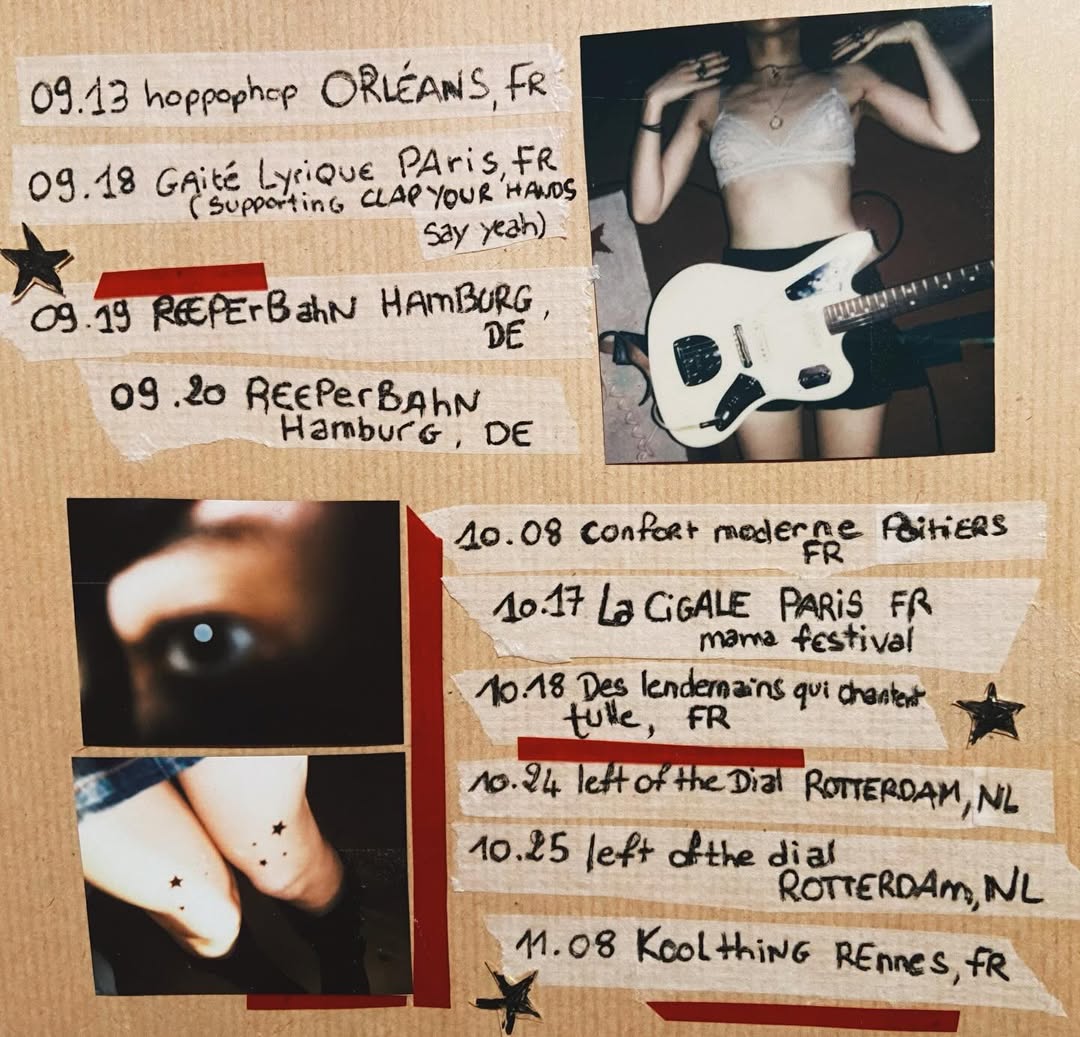 09.13 hoppophop ORLÉANS, FR
09.18 GAité LyriQUE PAris, FR
(supporting CLAP YOUR HANDS
say yeah)
09.19 REEPErBahN HAmBURG,
DE
09.20 REEPerBAhN
Hamburg, DE
10.08 confort moderne POitiERS
FR
10.17 La CiGALE PARiS FR
mama festival
10.18 Des lendemains qui chantent
tulle, FR
10.24 left of the Dial ROTTERDAM, NL
10.25 left of the dial
ROTTERDAm, NL
11.08 Kool thiNG REnnes, FR